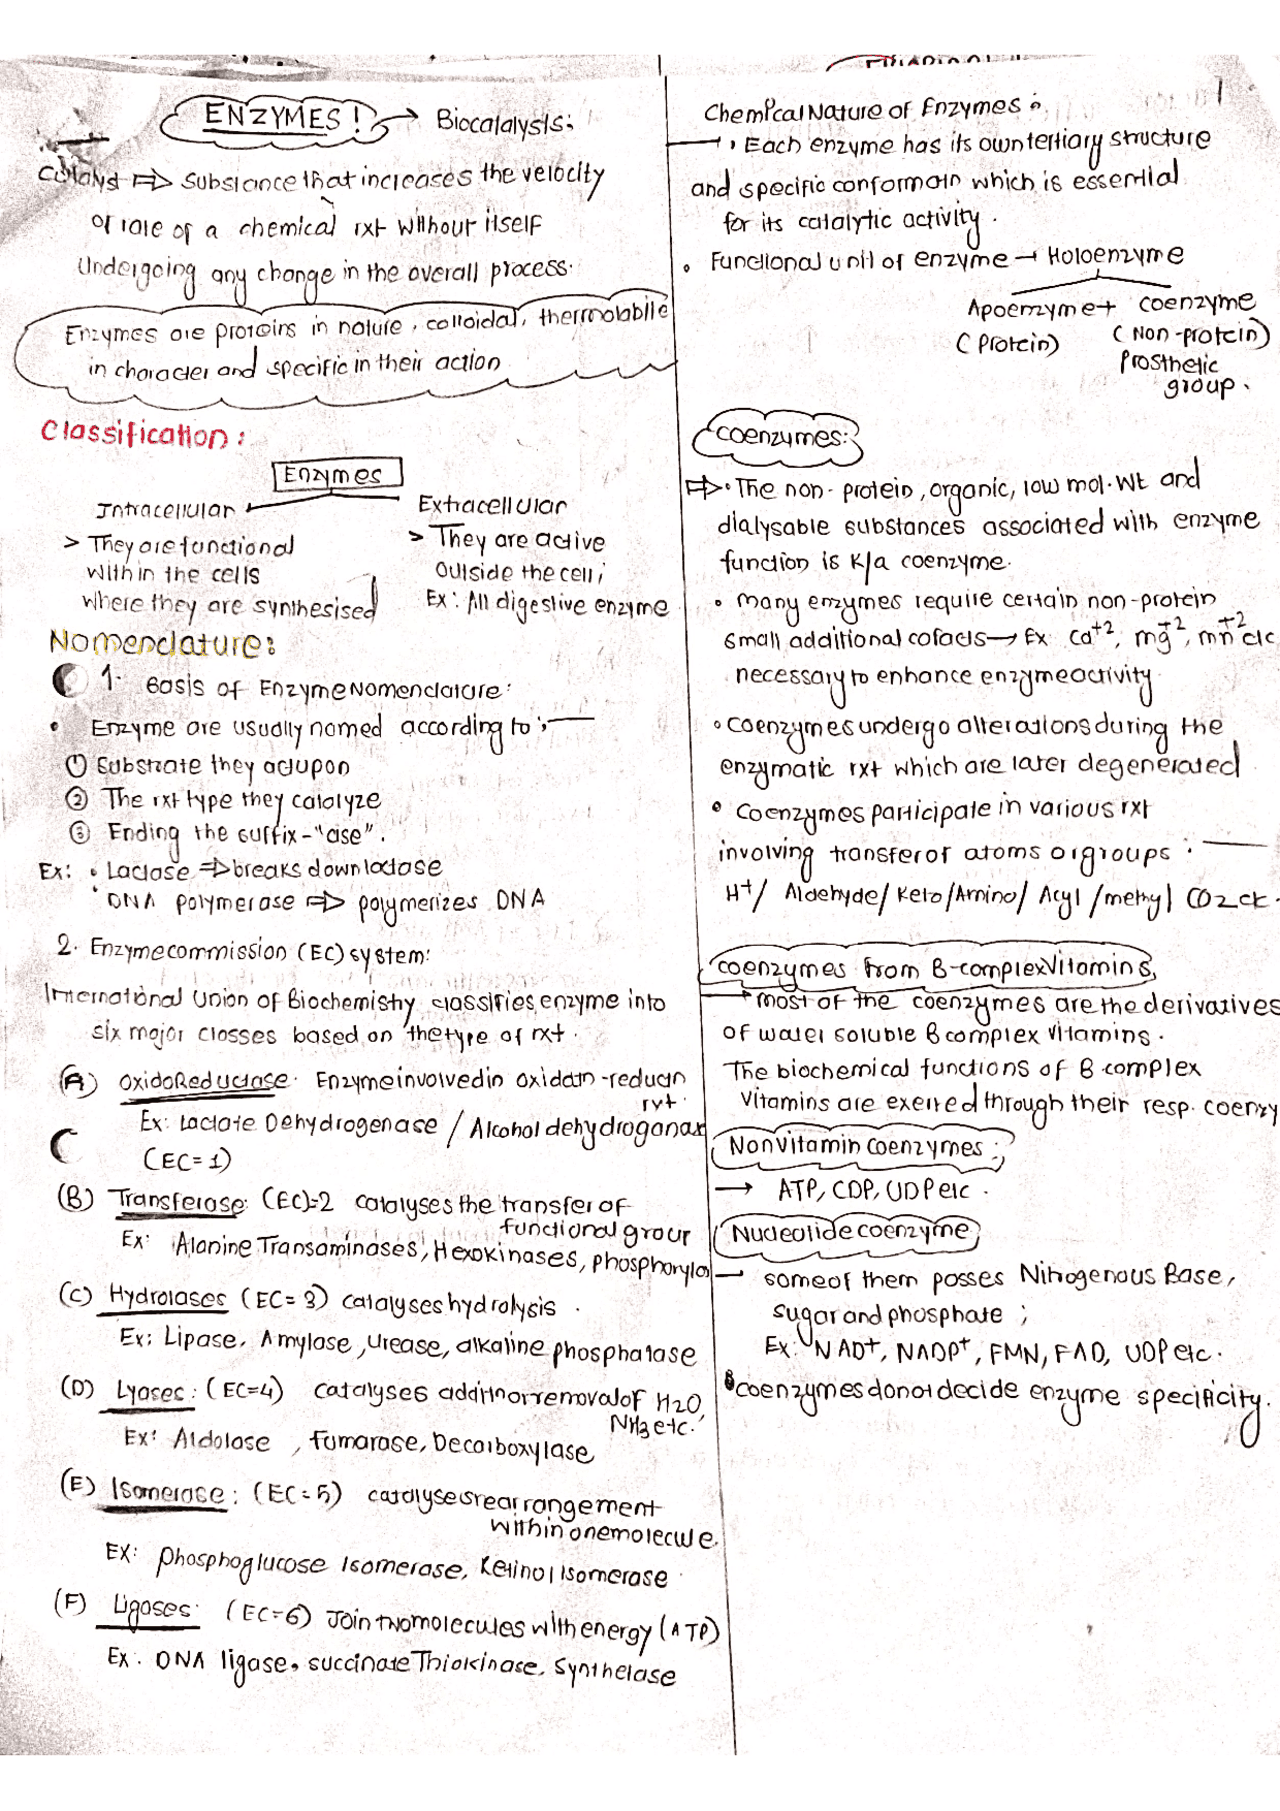 ENZYMES! → Biocatalysis:
Catalyst ⇒ Substance that increases the velocity
or rate of a chemical rxt without itself
Undergoing any change in the overall process.
Enzymes are proteins in nature, colloidal, thermolabile
in character and specific in their action
Classification:
Enzymes
Intracellular
> They are functional
within the cells
where they are synthesised
Extracellular
> They are active
outside the cell;
Ex: All digestive enzyme
Nomenclature:
1. Basis of Enzyme Nomenclature:
• Enzyme are usually named according to:—
① Substrate they act upon
② The rxt type they catalyze
③ Ending the suffix-"ase".
Ex: • Lactase ⇒ breaks down lactose
• DNA polymerase ⇒ polymerizes DNA
2. Enzyme commission (EC) system:
International Union of Biochemistry classifies enzyme into
six major classes based on the type of rxt.
(A) OxidoReductase. Enzyme involved in oxidatn-reductn
rxt.
Ex: Lactate Dehydrogenase / Alcohol dehydrogenase
(EC=1)
(B) Transferase: (EC)=2 catalyses the transfer of
functional group
Ex: Alanine Transaminases, Hexokinases, phosphoryla
(C) Hydrolases (EC=3) catalyses hydrolysis.
Ex: Lipase, Amylase, urease, alkaline phosphatase
(D) Lyases: (EC=4) catalyses additn or removal of H2O,
NH3 etc.
Ex: Aldolase, fumarase, Decarboxylase
(E) Isomerase: (EC=5) catalyses rearrangement
within one molecule.
EX: phosphoglucose Isomerase, Retinol Isomerase.
(F) Ligases: (EC=6) Join two molecules with energy (ATP)
Ex: DNA ligase, succinate Thiokinase, Synthetase
1
Chemical Nature of Enzymes:
→ • Each enzyme has its own tertiary structure
and specific conformatn which is essential
for its catalytic activity.
• Functional unit of enzyme → Holoenzyme
Apoenzyme + coenzyme
(Protein) (Non-protein)
Prosthetic
group.
Coenzymes:
⇒ • The non-protein, organic, low mol. wt and
dialysable substances associated with enzyme
function is K/a coenzyme.
• many enzymes require certain non-protein
small additional cofacts → Ex: ca+2, mg+2, mn+2 etc
necessary to enhance enzyme activity
• coenzymes undergo alterations during the
enzymatic rxt which are later degenerated
• coenzymes participate in various rxt
involving transfer of atoms or groups:—
H+/ Aldehyde/ Keto/Amino/ Acyl /methyl/ CO2 etc.
coenzymes from B-complex Vitamins,
→ most of the coenzymes are the derivatives
of water soluble B complex vitamins.
The biochemical functions of B-complex
Vitamins are exerted through their resp. coenzy
Non vitamin coenzymes:
→ ATP, CDP, UDP etc.
Nucleotide coenzyme
— some of them posses Nitrogenous Base,
sugar and phosphate;
Ex: NAD+, NADP+, FMN, FAD, UDP etc.
• coenzymes do not decide enzyme specificity.